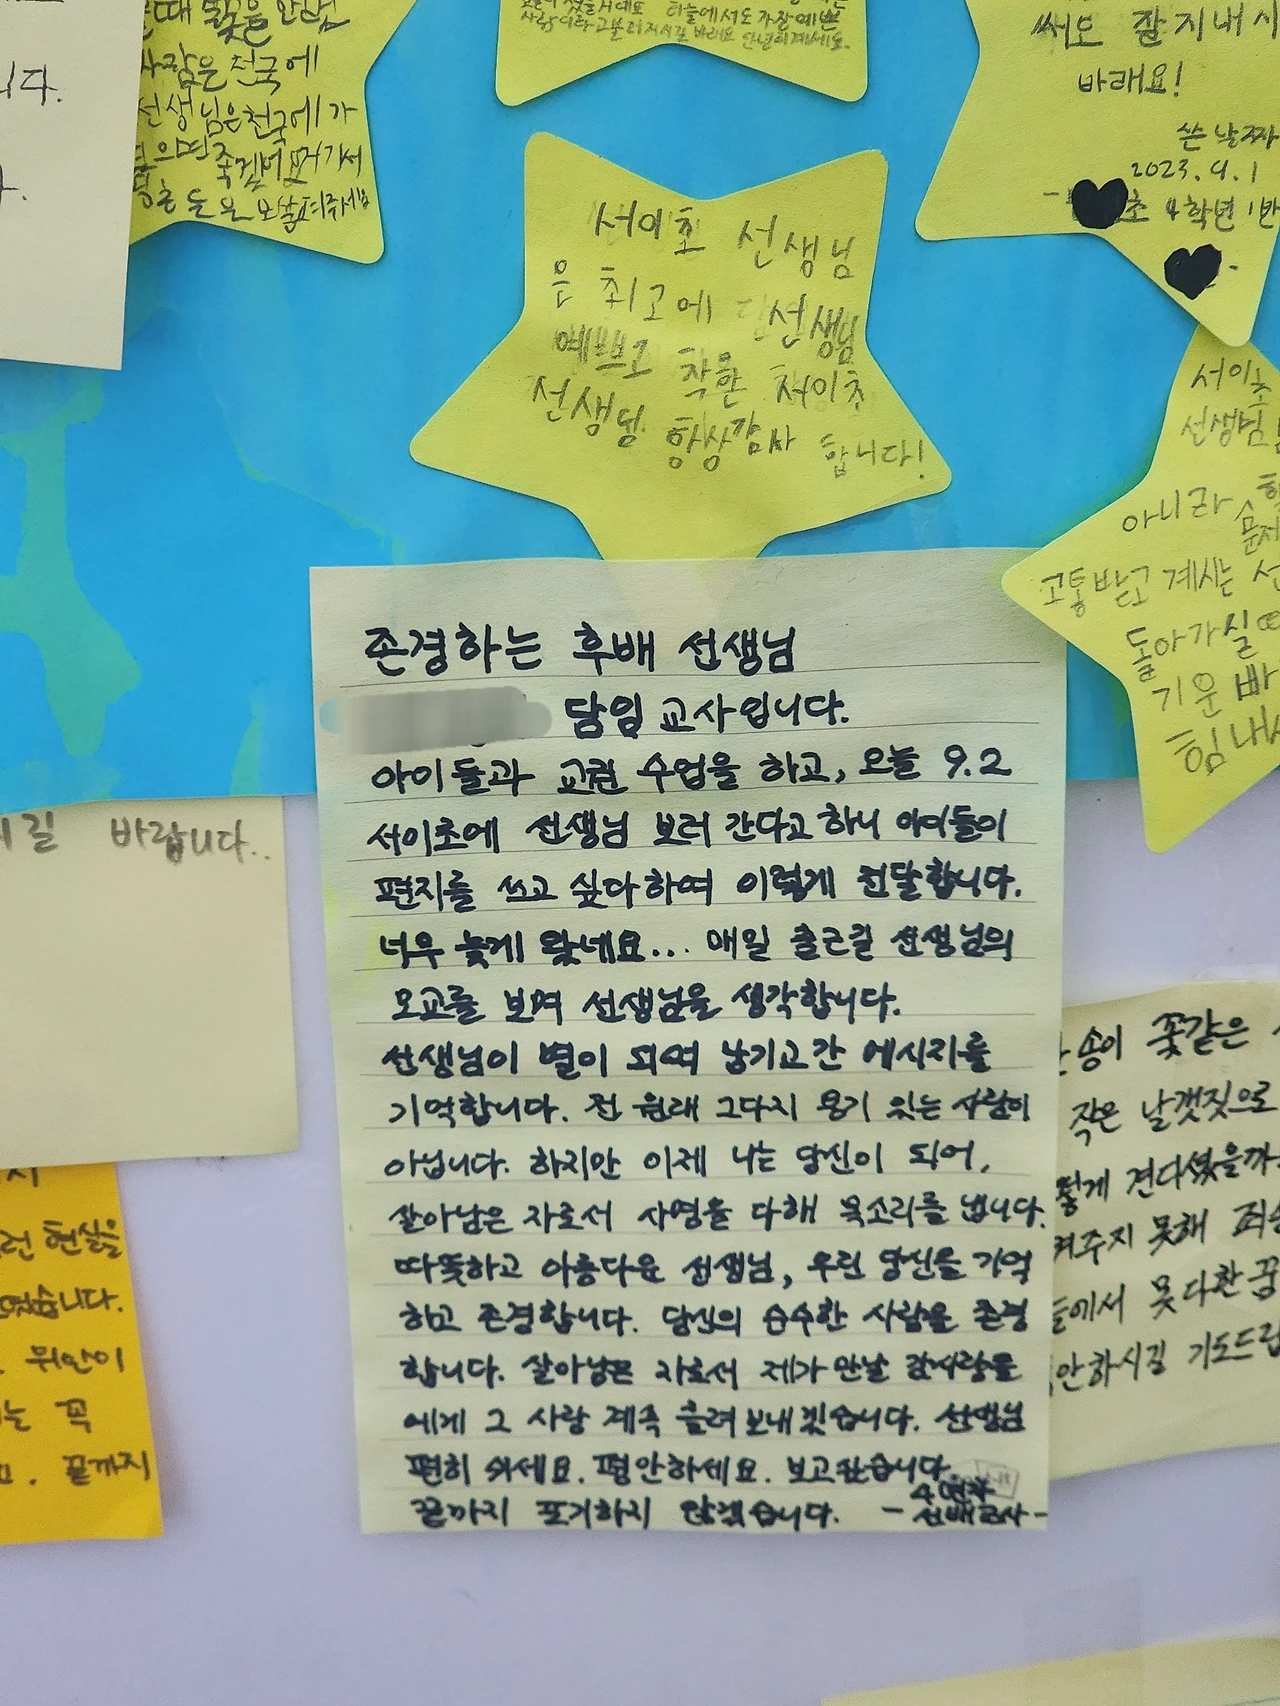 때
사람은 천국에
선생님은천국에가
죽겠어요거기서
니다.
하늘에서도 가장예쁜
안녕히계세요.
써도 잘 지내시
바래요!
쓴 날짜
2023. 9. 1
초 4학년 1반
서이초 선생님
은 최고에 선생님
예쁘고 착한 서이초
선생님 항상감사 합니다!
서이초
선생님
아니라
문제
고통받고 계시는 선
돌아가실
기운 빠
힘내
존경하는 후배 선생님
담임 교사입니다.
아이들과 교권 수업을 하고, 오늘 9.2
서이초에 선생님 보러 간다고 하니 아이들이
편지를 쓰고 싶다하여 이렇게 전달합니다.
너무 늦게 왔네요... 매일 출근길 선생님의
모교를 보며 선생님을 생각합니다.
선생님이 별이 되며 남기고간 메시지를
기억합니다. 전 원래 그다지 용기 있는 사람이
아닙니다. 하지만 이제 나는 당신이 되어,
살아남은 자로서 사명을 다해 목소리를 냅니다.
따뜻하고 아름다운 선생님, 우린 당신을 기억
하고 존경합니다. 당신의 순수한 사람을 존경
합니다. 살아남은 자로서 제가 만날 감사랑을
에게 그 사랑 계속 흘려보내겠습니다. 선생님
편히 쉬세요. 평안하세요. 보고싶습니다
끝까지 포기하지 않겠습니다. - 4년차
선배교사 -
시길 바랍니다..
런 현실을
였습니다.
위안이
는 꼭
끝까지
송이 꽃같은
작은 날갯짓으로
떻게 견디셨을까
켜주지 못해 죄송
늘에서 못다한 꿈
안하시길 기도드립